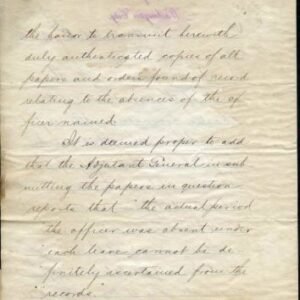 the honor to transmit herewith
duly authenticated copies of all
papers and orders found of record
relating to the absences of the of
ficer named.
It is deemed proper to add
that the Adjutant General in sub
mitting the papers in question
reports that "the actual period
"the officer was absent under
"each leave cannot be de
"finitely ascertained from the
"records."